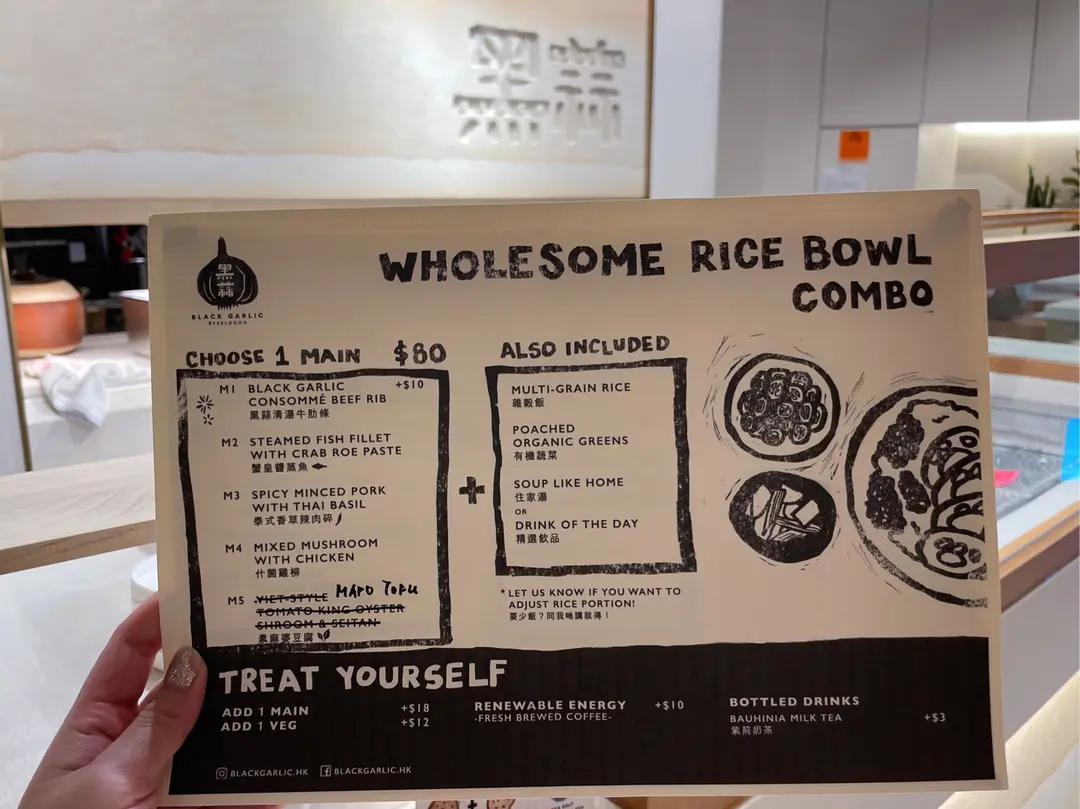 黑蒜
黑蒜
BLACK GARLIC
BYFEELGOOD
WHOLESOME RICE BOWL
COMBO
CHOOSE 1 MAIN $80
M1 BLACK GARLIC +$10
CONSOMMÉ BEEF RIB
黑蒜清湯牛肋條
M2 STEAMED FISH FILLET
WITH CRAB ROE PASTE
蟹皇醬蒸魚
M3 SPICY MINCED PORK
WITH THAI BASIL
泰式香草辣肉碎
M4 MIXED MUSHROOM
WITH CHICKEN
什菌雞柳
M5 VIET-STYLE MAPO TOFU
TOMATO KING OYSTER
SHROOM & SEITAN
素麻婆豆腐
+
ALSO INCLUDED
MULTI-GRAIN RICE
雜穀飯
POACHED
ORGANIC GREENS
有機蔬菜
SOUP LIKE HOME
住家湯
OR
DRINK OF THE DAY
精選飲品
* LET US KNOW IF YOU WANT TO
ADJUST RICE PORTION!
要少飯？同我哋講就得！
TREAT YOURSELF
ADD 1 MAIN +$18
ADD 1 VEG +$12
RENEWABLE ENERGY +$10
-FRESH BREWED COFFEE-
BOTTLED DRINKS
BAUHINIA MILK TEA +$3
紫荊奶茶
BLACKGARLIC.HK BLACKGARLIC.HK